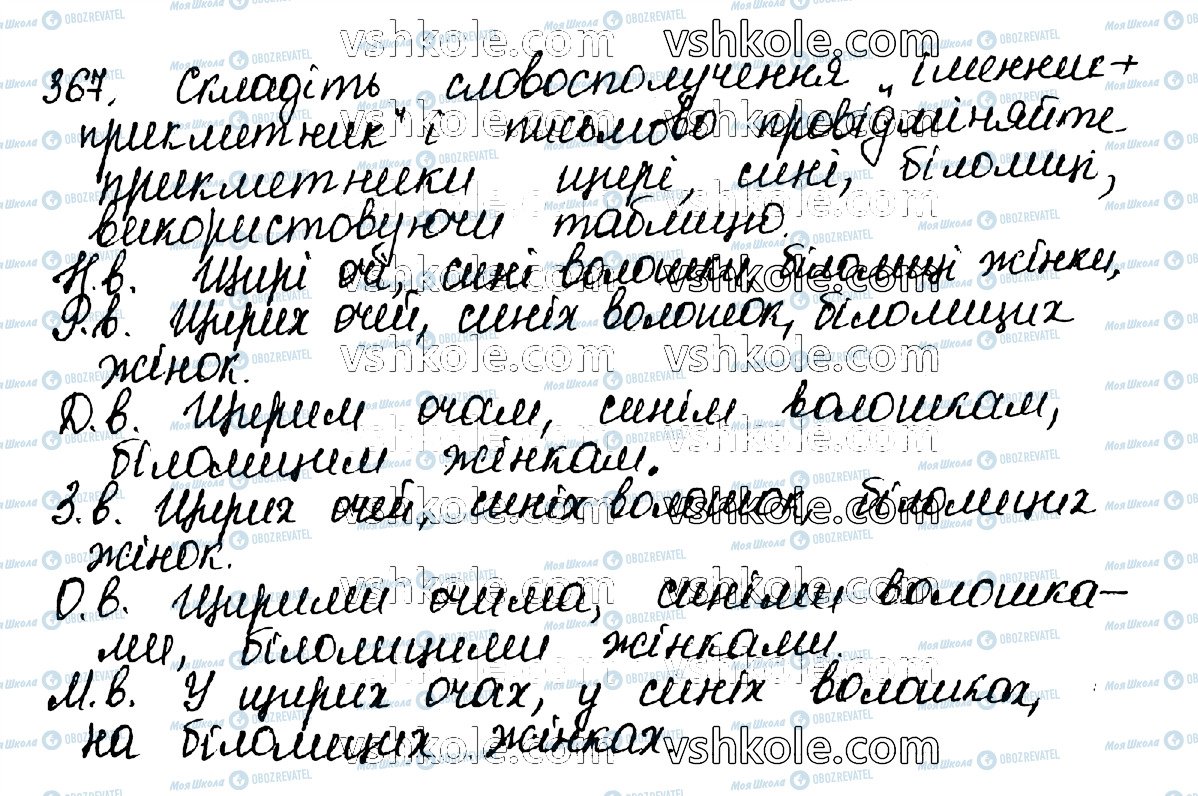 367. Складіть словосполучення „іменник+
прикметник" і письмово провідміняйте
прикметники щирі, сині, білолиці,
використовуючи таблицю.
Н.в. Щирі очі, сині волошки, білолиці жінки,
Р.в. Щирих очей, синіх волошок, білолицих
жінок.
Д.в. Щирим очам, синім волошкам,
білолицим жінкам.
З.в. Щирих очей, синіх волошок, білолицих
жінок.
О.в. Щирими очима, синіми волошка-
ми, білолицими жінками.
М.в. У щирих очах, у синіх волошках,
на білолицих жінках.
vshkole.com
МояШкола OBOZREVATEL